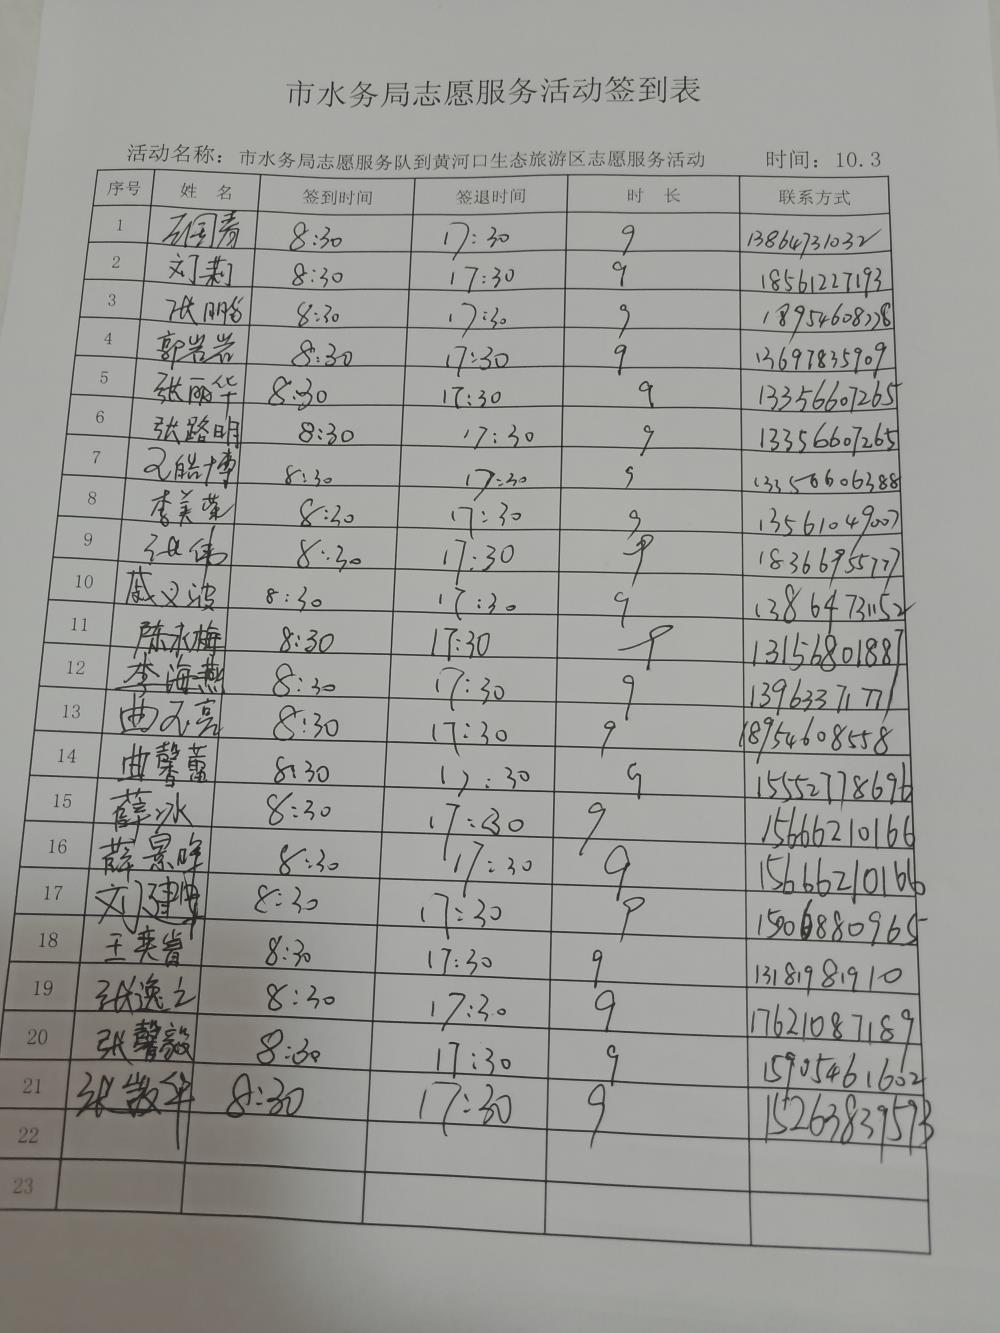 市水务局志愿服务活动签到表
活动名称：市水务局志愿服务队到黄河口生态旅游区志愿服务活动 时间：10.3
序号 姓 名 签到时间 签退时间 时 长 联系方式
1 石国青 8:30 17:30 9 13864731032
2 刘莉 8:30 17:30 9 18561227193
3 张鹏 8:30 17:30 9 18954608778
4 郭岩岩 8:30 17:30 9 13697835909
5 张丽华 8:30 17:30 9 13356607265
6 张路明 8:30 17:30 9 13356607265
7 皓博 8:30 17:30 9 13356606388
8 李美荣 8:30 17:30 9 13561049007
9 张伟 8:30 17:30 9 18366955777
10 义波 8:30 17:30 9 13864731152
11 陈水梅 8:30 17:30 9 13156801887
12 李海燕 8:30 17:30 9 13963371771
13 曲不亮 8:30 17:30 9 18954608558
14 曲馨蕾 8:30 17:30 9 15552778696
15 薛冰 8:30 17:30 9 15666210166
16 薛景 8:30 17:30 9 15666210166
17 刘建 8:30 17:30 9 15068880965
18 王奕睿 8:30 17:30 9 13181981910
19 张逸之 8:30 17:30 9 17621087189
20 张馨毅 8:30 17:30 9 15905461602
21 张 8:30 17:30 9 15263839593
22
23